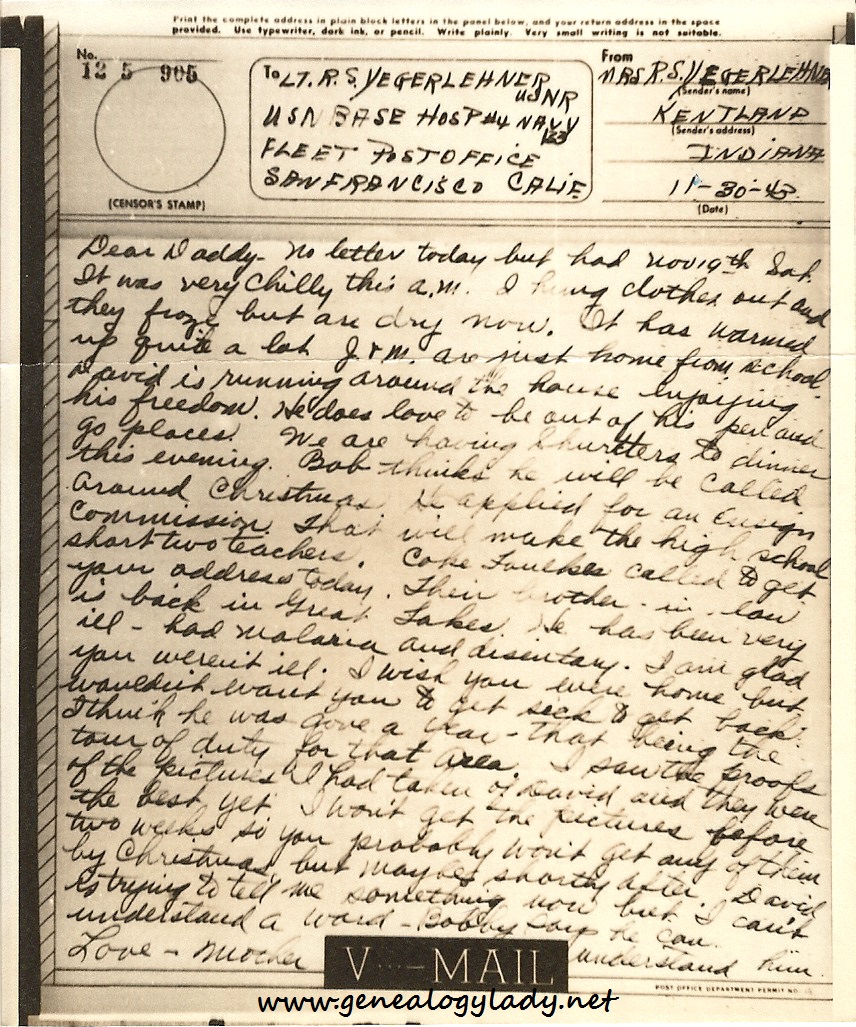 Print the complete address in plain block letters in the panel below, and your return address in the space
provided. Use typewriter, dark ink, or pencil. Write plainly. Very small writing is not suitable.
No.
12 5 905
(CENSOR'S STAMP)
To LT. R. S. YEGERLEHNER
USNR
USN BASE HOSP #4 NAVY
133
FLEET POSTOFFICE
SANFRANCISCO CALIF.
From
MRS R. S. YEGERLEHNER
(Sender's name)
KENTLAND
(Sender's address)
INDIANA
11-30-43
(Date)
Dear Daddy - No letter today but had Nov 19th Sat.
It was very chilly this a.m. I hung clothes out and
they froze but are dry now. It has warmed
up quite a lot. J & M. are just home from school.
David is running around the house enjoying
his freedom. He does love to be out of his pen and
go places. We are having to dinner
this evening. Bob thinks he will be called
around Christmas. He applied for an Ensign
Commission. That will make the high school
short two teachers. Coke called to get
your address today. Their brother-in-law
is back in Great Lakes. He has been very
ill - had malaria and disentary. I am glad
you weren't ill. I wish you were home but
wouldn't want you to get sick to get back.
I think he was gone a year - that being the
tour of duty for that area. I saw the proofs
of the pictures I had taken of David and they were
the best yet. I won't get the pictures before
two weeks so you probably won't get any of them
by Christmas, but maybe shortly after. David
is trying to tell me something now but I can't
understand a word - Bobby says he can
understand him.
Love - Mother
V···—MAIL
POST OFFICE DEPARTMENT PERMIT NO.
www.genealogylady.net